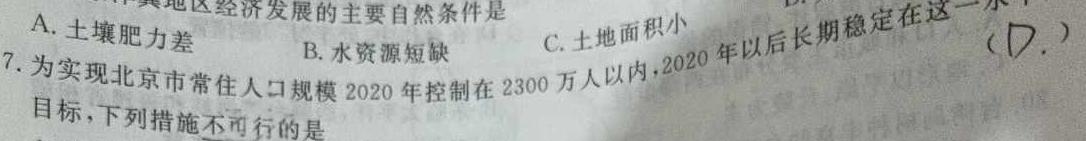 地区经济发展的主要自然条件是
A. 土壤肥力差 B. 水资源短缺 C. 土地面积小
7. 为实现北京市常住人口规模 2020 年控制在 2300 万人以内,2020 年以后长期稳定在这一水
目标,下列措施不可行的是 (D.)